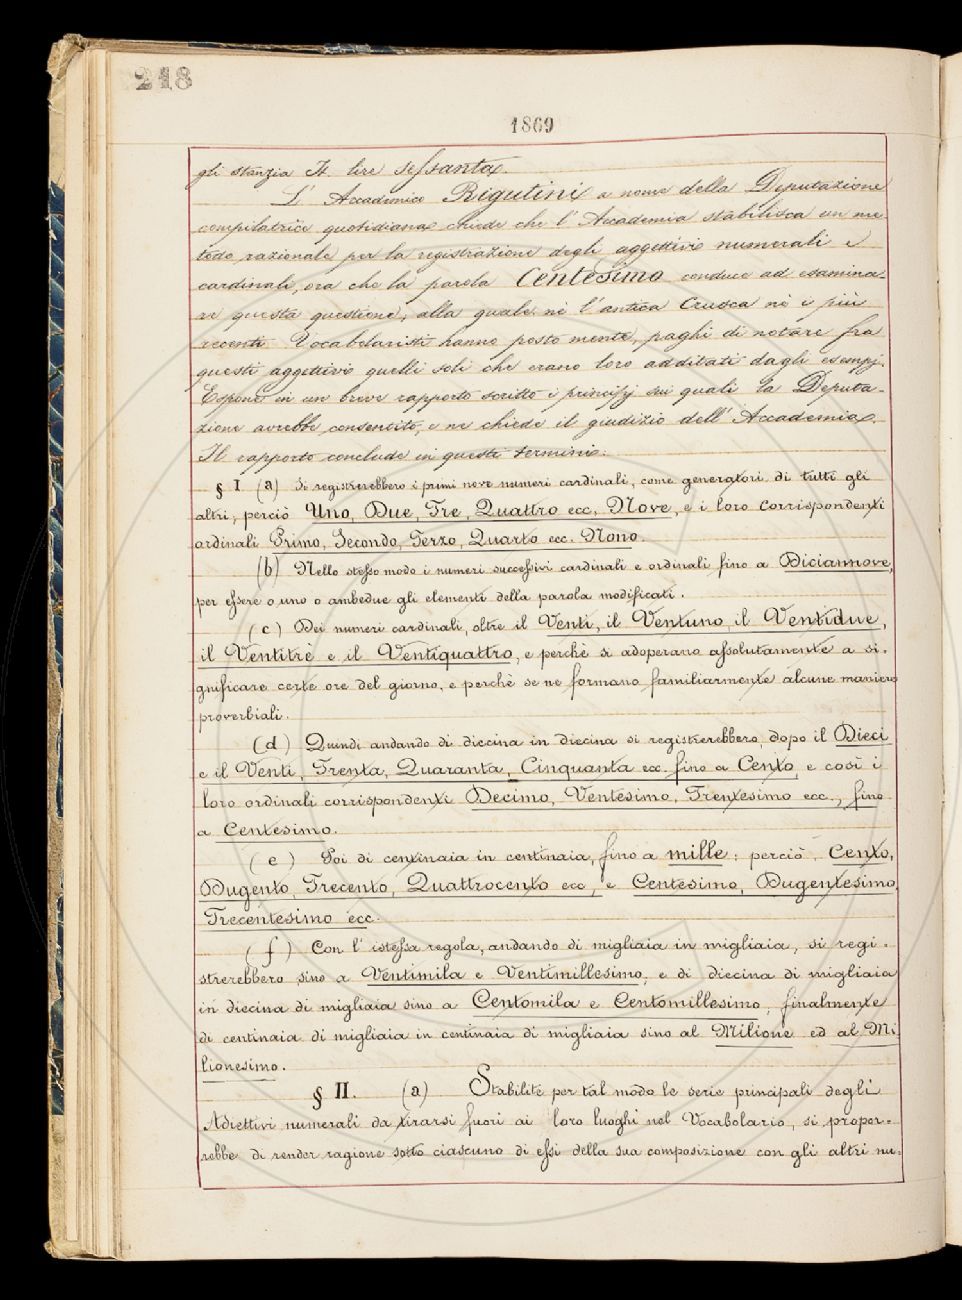 218
1869
gli stanzia It. lire sessanta.
L' Accademico Rigutini a nome della Deputazione
compilatrice quotidiana chiede che l' Accademia stabilisca un me
todo razionale per la registrazione degli aggettivi numerali e
cardinali, ora che la parola Centesimo conduce ad esamina
re questa questione, alla quale nè l' antica Crusca nè i più
recenti Vocabolaristi hanno posto mente, paghi di notare fra
questi aggettivi quelli soli che erano loro additati dagli esempj.
Espone in un breve rapporto scritto i principj sui quali la Deputa-
zione avrebbe consentito, e ne chiede il giudizio dell' Accademia.
Il rapporto conclude in questi termini:
§ I (a) Si registrerebbero i primi nove numeri cardinali, come generatori di tutti gli
altri; perciò Uno, Due, Tre, Quattro ecc. Nove, e i loro corrispondenti
ordinali Primo, Secondo, Terzo, Quarto ecc. Nono.
(b) Nello stesso modo i numeri successivi cardinali e ordinali fino a Diciannove,
per essere o uno o ambedue gli elementi della parola modificati.
(c) Dei numeri cardinali, oltre il Venti, il Ventuno, il Ventidue,
il Ventitrè e il Ventiquattro, e perchè si adoperano assolutamente a si-
gnificare certe ore del giorno, e perchè se ne formano familiarmente alcune maniere
proverbiali.
(d) Quindi andando di diecina in diecina si registrerebbero, dopo il Dieci
e il Venti, Trenta, Quaranta, Cinquanta ecc. fino a Cento, e così i
loro ordinali corrispondenti Decimo, Ventesimo, Trentesimo ecc., fino
a Centesimo.
(e) Poi di centinaia in centinaia, fino a mille: perciò, Cento,
Dugento, Trecento, Quattrocento ecc., e Centesimo, Dugentesimo,
Trecentesimo ecc.
(f) Con l' istessa regola, andando di migliaia in migliaia, si regi-
strerebbero sino a Ventimila e Ventimillesimo, e di diecina di migliaia
in diecina di migliaia sino a Centomila e Centomillesimo, finalmente
di centinaia di migliaia in centinaia di migliaia sino al Milione ed al Mi
lionesimo.
§ II. (a) Stabilite per tal modo le serie principali degli
Adiettivi numerali da tirarsi fuori ai loro luoghi nel Vocabolario, si propor-
rebbe di render ragione sotto ciascuno di essi della sua composizione con gli altri nu-